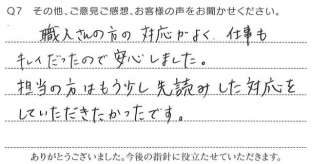 Q7 その他、ご意見ご感想、お客様の声をお聞かせください。
職人さんの方の対応がよく、仕事も
キレイだったので安心しました。
担当の方はもう少し先読みした対応を
していただきたかったです。
ありがとうございました。今後の指針に役立たせていただきます。